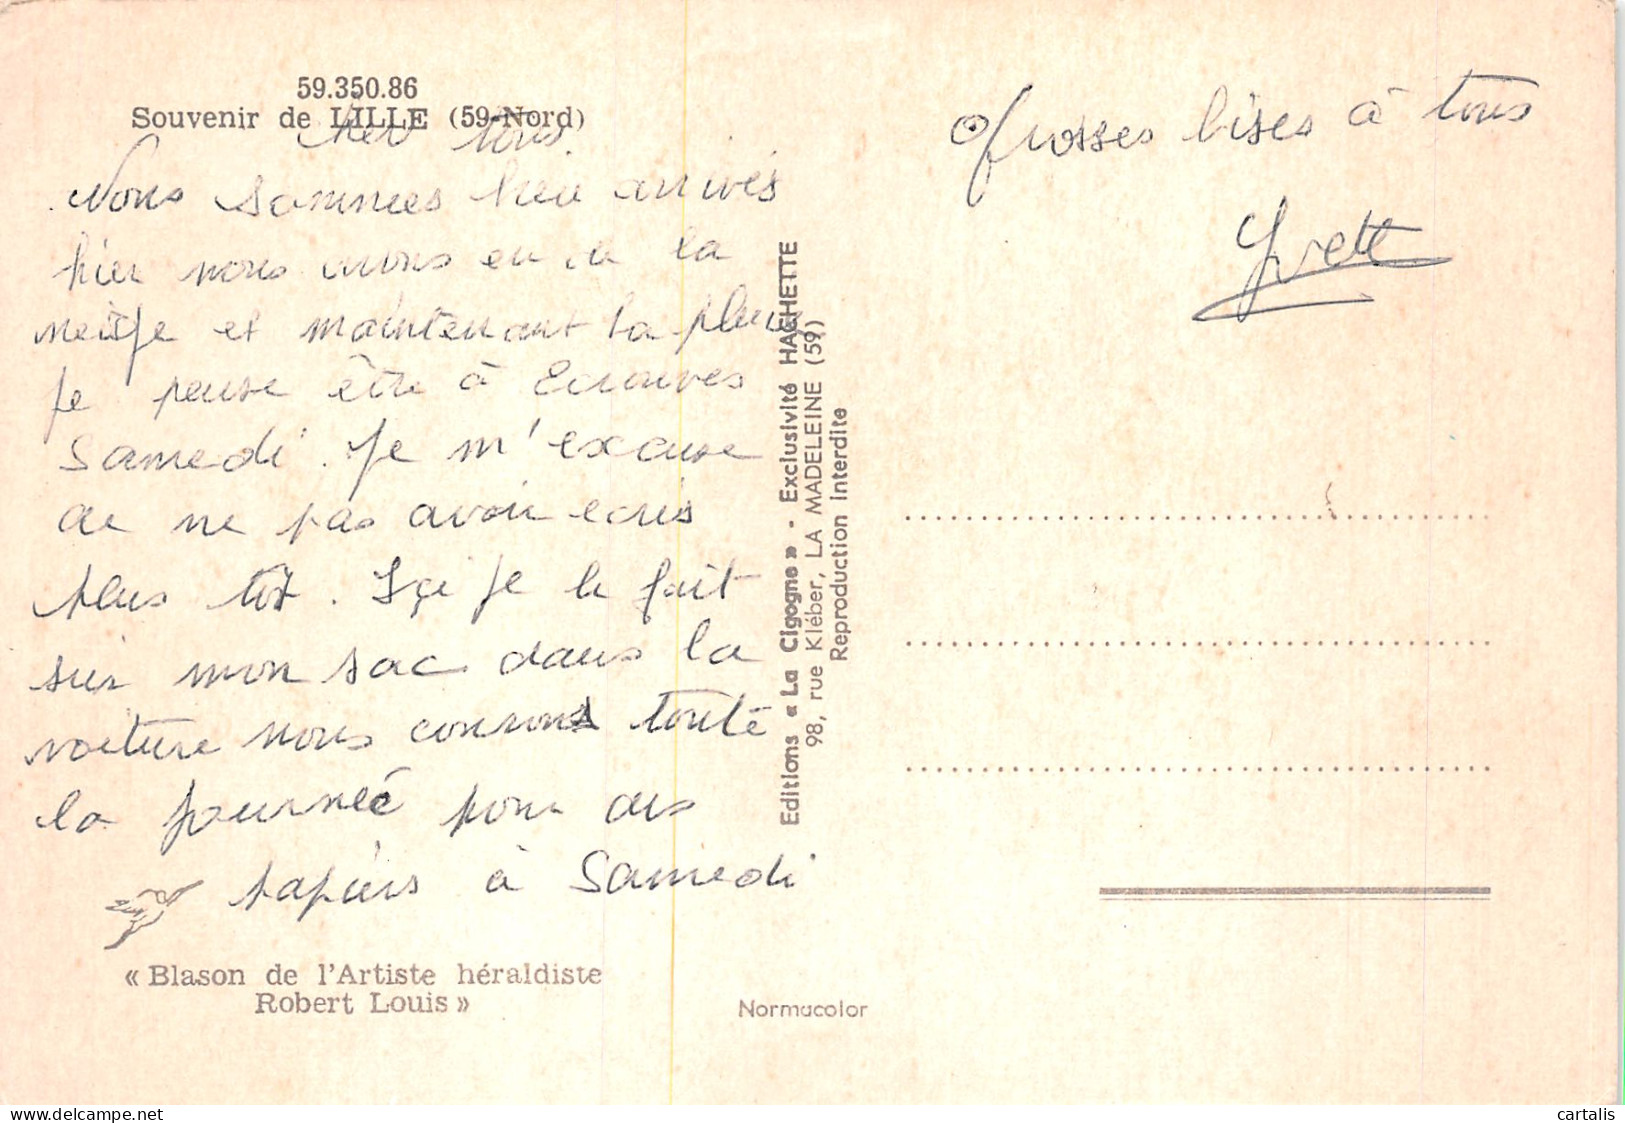 59.350.86
Souvenir de LILLE (59-Nord)
Cher tous.
Nous sommes bien arrivés
hier nous avons eu de la
neige et maintenant la pluie
Je pense être à Ecrouves
Samedi. Je m'excuse
de ne pas avoir ecris
plus tôt. Içi je le fait
sur mon sac dans la
voiture nous courons toute
la journeé pour des
papiers à Samedi
« Blason de l'Artiste héraldiste
Robert Louis »
Editions « La Cigogne » - Exclusivité HACHETTE
98, rue Kléber, LA MADELEINE (59)
Reproduction Interdite
Normacolor
Grosses bises à tous
Yvette
www.delcampe.net
cartalis